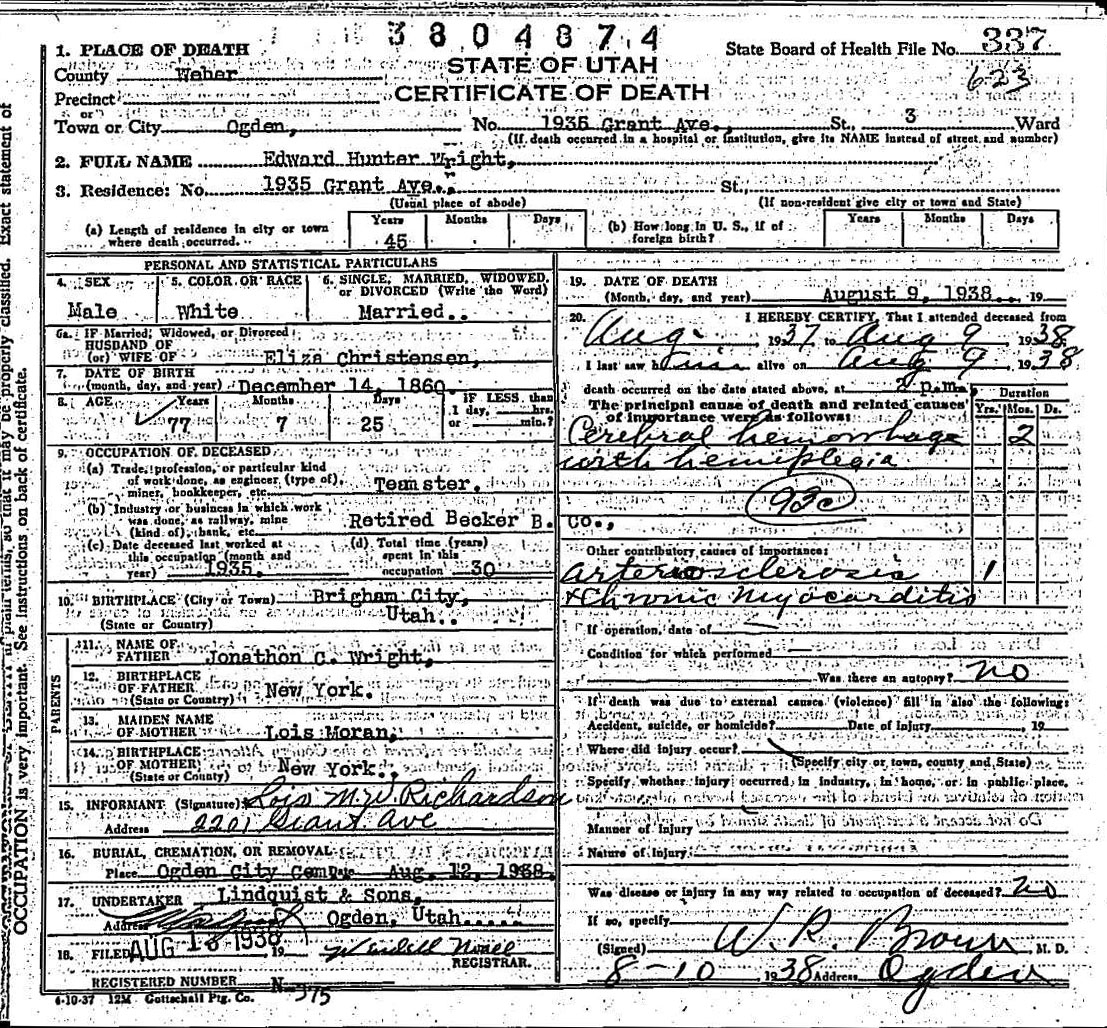 3804874
1. PLACE OF DEATH
State Board of Health File No. 337
STATE OF UTAH
County Weber
623
CERTIFICATE OF DEATH
Precinct
or
Town or City Ogden, No. 1935 Grant Ave., St., 3 Ward
(If death occurred in a hospital or institution, give its NAME instead of street and number)
2. FULL NAME Edward Hunter Wright,
3. Residence: No. 1935 Grant Ave., St.,
(Usual place of abode) (If non-resident give city or town and State)
(a) Length of residence in city or town where death occurred. Years 45 Months Days
(b) How long in U. S., if of foreign birth? Years Months Days
PERSONAL AND STATISTICAL PARTICULARS
4. SEX 5. COLOR OR RACE 6. SINGLE, MARRIED, WIDOWED, or DIVORCED (Write the Word)
Male White Married..
6a. IF Married, Widowed, or Divorced
HUSBAND OF
(or) WIFE OF Eliza Christensen,
7. DATE OF BIRTH
(month, day, and year) December 14, 1860.
8. AGE Years Months Days IF LESS than
1 day, hrs.
or min.?
77 7 25
9. OCCUPATION OF DECEASED
(a) Trade, profession, or particular kind
of work done, as engineer, (type of),
miner, bookkeeper, etc. Teamster.
(b) Industry or business in which work
was done, as railway, mine
(kind of), bank, etc. Retired Becker B. Co.,
(c) Date deceased last worked at
this occupation (month and
year) 1935.
(d) Total time (years)
spent in this
occupation 30
10. BIRTHPLACE (City or Town) Brigham City,
(State or Country) Utah..
PARENTS
11. NAME OF
FATHER Jonathon C. Wright,
12. BIRTHPLACE
OF FATHER New York.
(State or Country)
13. MAIDEN NAME
OF MOTHER Lois Moran,
14. BIRTHPLACE
OF MOTHER New York.,
(State or County)
15. INFORMANT (Signature) Lois M. W. Richardson
Address 2201 Grant Ave
16. BURIAL, CREMATION, OR REMOVAL
Place Ogden City Cem Date Aug. 12, 1938.
17. UNDERTAKER Lindquist & Sons,
Address Ogden, Utah.....
18. FILED AUG 18 1938 19
REGISTRAR.
REGISTERED NUMBER N-315
4-10-37 12M Gottschall Ptg. Co.
19. DATE OF DEATH
(Month, day, and year) August 9, 1938.., 19
20. I HEREBY CERTIFY, That I attended deceased from
Aug- 1937 to Aug 9 1938
I last saw him alive on Aug 9 1938
death occurred on the date stated above, at p.m.
The principal cause of death and related causes
of importance were as follows:
Duration
Yrs. Mos. Ds.
Cerebral hemorrhage 2
with hemiplegia
93c
Other contributory causes of importance:
Arteriosclerosis 1
+ Chronic Myocarditis
If operation, date of
Condition for which performed
Was there an autopsy? No
If death was due to external causes (violence) fill in also the following:
Accident, suicide, or homicide? Date of Injury , 19
Where did injury occur?
(Specify city or town, county and State)
Specify whether injury occurred in industry, in home, or in public place.
Manner of Injury
Nature of Injury
Was disease or injury in any way related to occupation of deceased? No
If so, specify
(Signed) W. R. Brown M. D.
8-10 1938 Address Ogden
Exact statement of
so that it may be properly classified.
OCCUPATION is very important. See instructions on back of certificate.